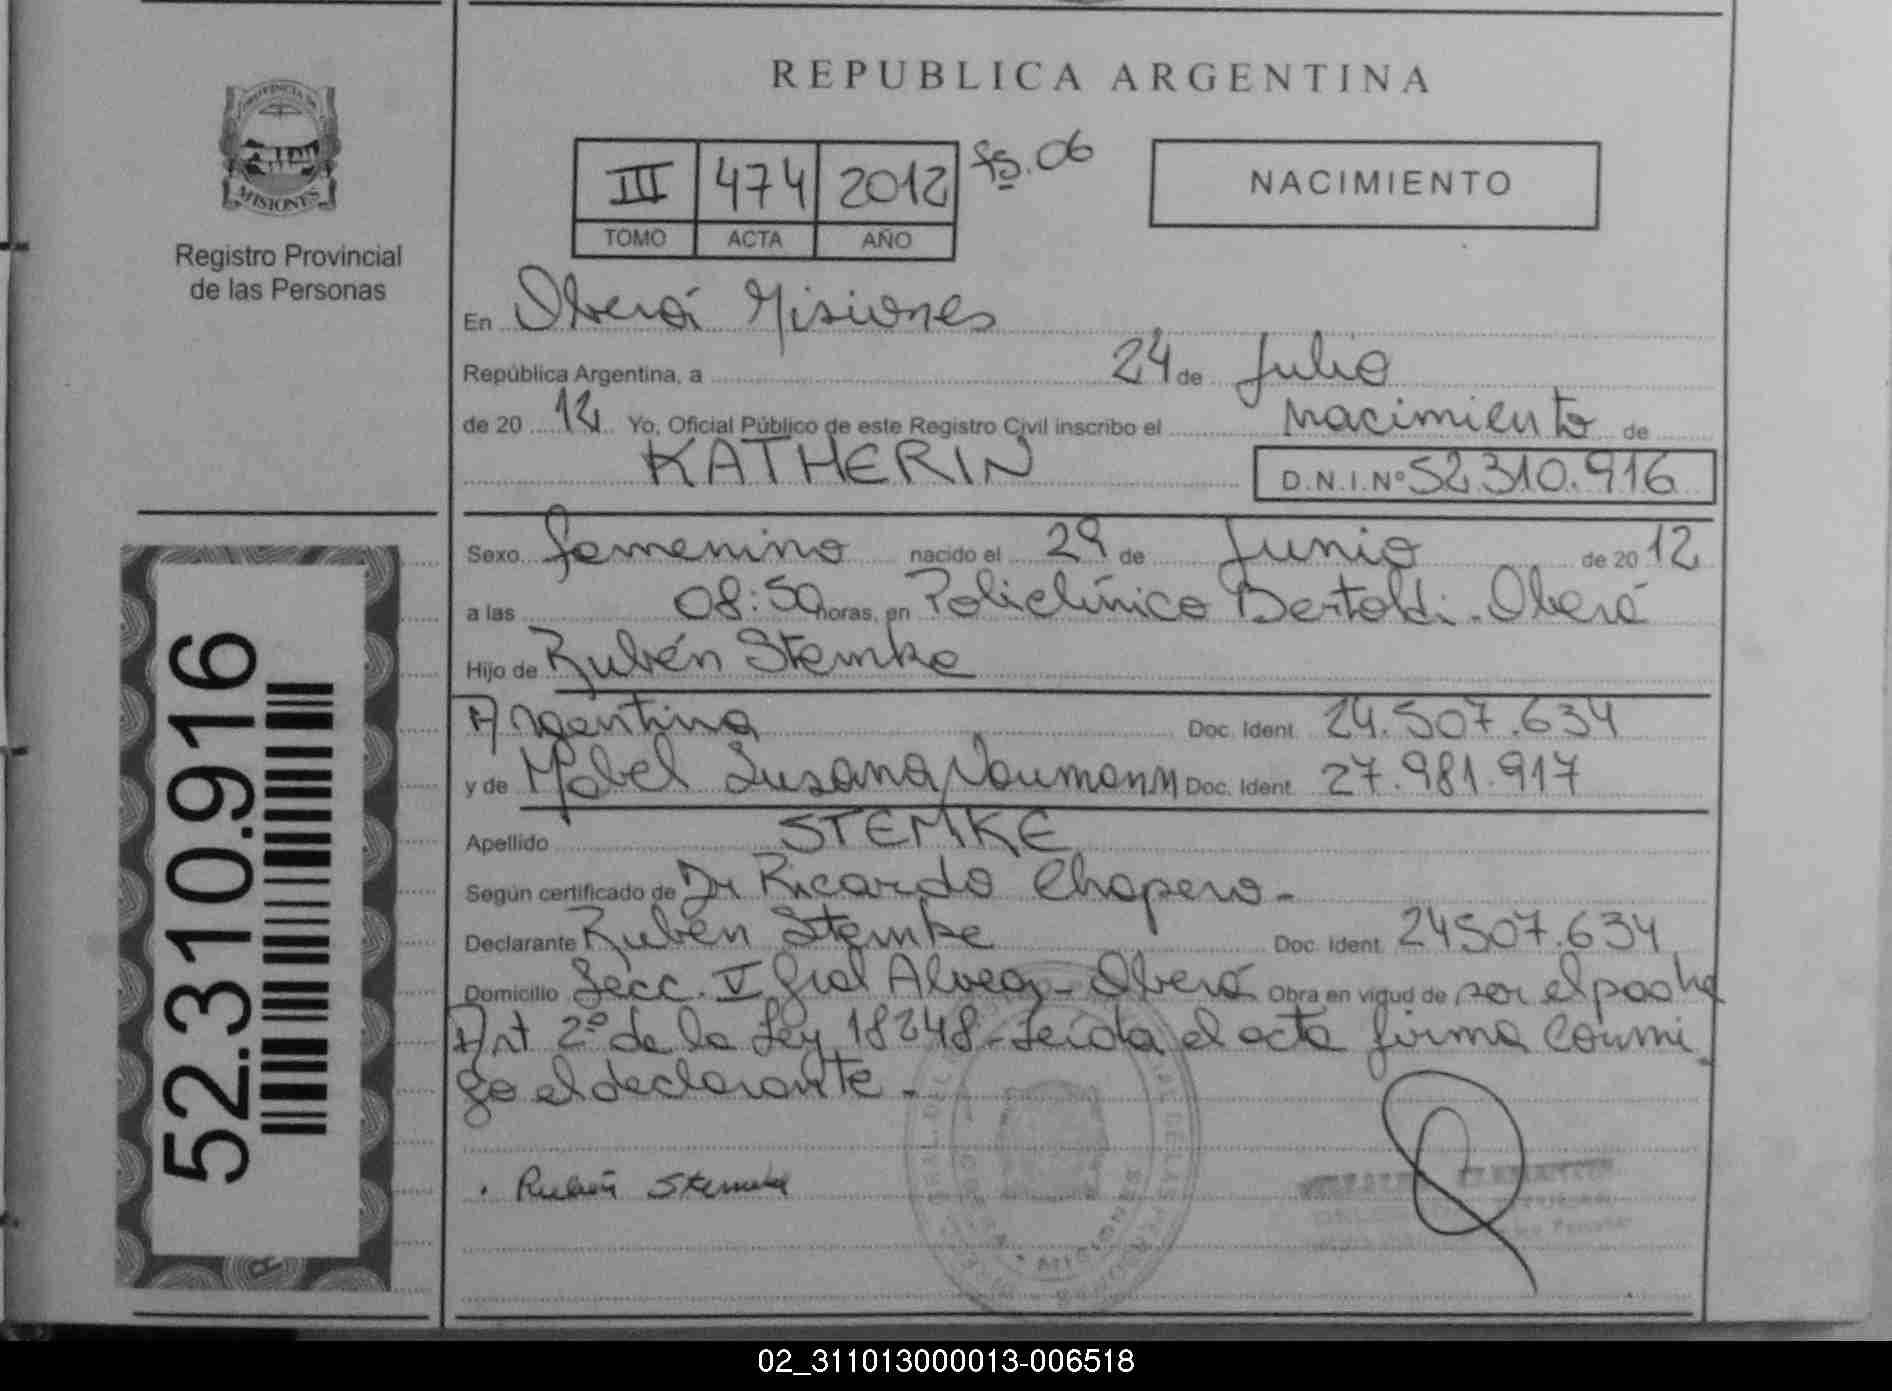 REPUBLICA ARGENTINA
PROVINCIA DE
MISIONES
Registro Provincial
de las Personas
III 474 2012 fs. 06
TOMO ACTA AÑO
NACIMIENTO
En Oberá Misiones
República Argentina, a 24 de Julio
de 20 12 Yo, Oficial Público de este Registro Civil inscribo el nacimiento de
KATHERIN D.N.I.Nº 52.310.916
Sexo femenino nacido el 29 de Junio de 20 12
a las 08:50 horas, en Policlínico Bertoldi. Oberá
Hijo de Rubén Stemke
Argentina Doc. Ident. 24.507.634
y de Mabel Susana Naumann Doc. Ident. 27.981.917
Apellido STEMKE
Según certificado de Dr Ricardo Chapero -
Declarante Rubén Stemke Doc. Ident. 24507.634
Domicilio Secc. V Gral Alvear - Oberá Obra en vigud de ser el padre
Art 2º de la Ley 18248 - Leída el acta firma conmi
go el declarante -
Rubén Stemke
52.310.916
02_311013000013-006518